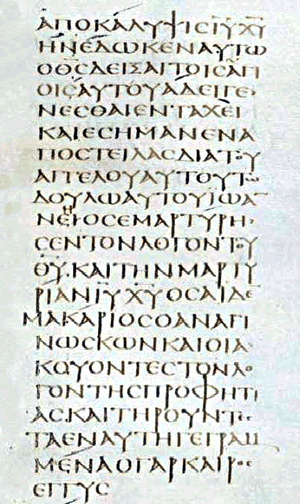 ΑΠΟΚΑΛΥΨΙϹΙ̅Υ̅Χ̅Υ̅
ΗΝΕΔΩΚΕΝΑΥΤΩ
ΟΘ̅Ϲ̅ΔΕΙΞΑΙΤΟΙϹΑΓΙ
ΟΙϹΑΥΤΟΥΑΔΕΙΓΕ
ΝΕϹΘΑΙΕΝΤΑΧΕΙ
ΚΑΙΕϹΗΜΑΝΕΝΑ
ΠΟϹΤΕΙΛΑϹΔΙΑΤΟΥ
ΑΓΓΕΛΟΥΑΥΤΟΥΤΩ
ΔΟΥΛΩΑΥΤΟΥΪΩΑ
ΝΕΙΟϹΕΜΑΡΤΥΡΗ
ϹΕΝΤΟΝΛΟΓΟΝΤΟΥ
Θ̅Υ̅·ΚΑΙΤΗΝΜΑΡΤΥ
ΡΙΑΝΙ̅Υ̅Χ̅Υ̅ΟϹΑΙΔΕ
ΜΑΚΑΡΙΟϹΟΑΝΑΓΙ
ΝΩϹΚΩΝΚΑΙΟΙΑ
ΚΟΥΟΝΤΕϹΤΟΝΛΟ
ΓΟΝΤΗϹΠΡΟΦΗΤΙ
ΑϹΚΑΙΤΗΡΟΥΝΤΕϹ
ΤΑΕΝΑΥΤΗΓΕΓΡΑΜ
ΜΕΝΑΟΓΑΡΚΑΙΡΟϹ
ΕΓΓΥϹ